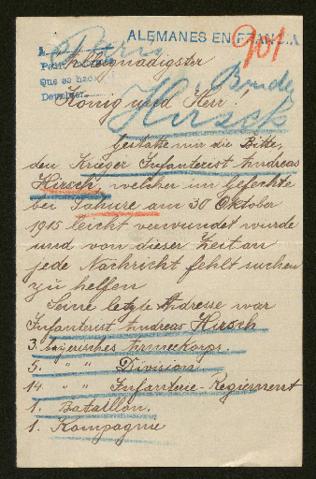 ALEMANES EN FRANCIA
901
Paris
A
Que se hace
Allergnädigster
Bruder
König und Herr!
Hirsch
Gestatte mir die Bitte,
den Krieger Infanterist Andreas
Hirsch, welcher im Gefechte
bei Tahure am 30 Oktober
1915 leicht verwundet wurde
und von dieser Zeit an
jede Nachricht fehlt suchen
zu helfen
Seine letzte Adresse war
Infanterist Andreas Hirsch
3. bayerisches Armeekorps.
5. " " Division
14. " " Infanterie-Regiement
1. Bataillon.
1. Kompagnie